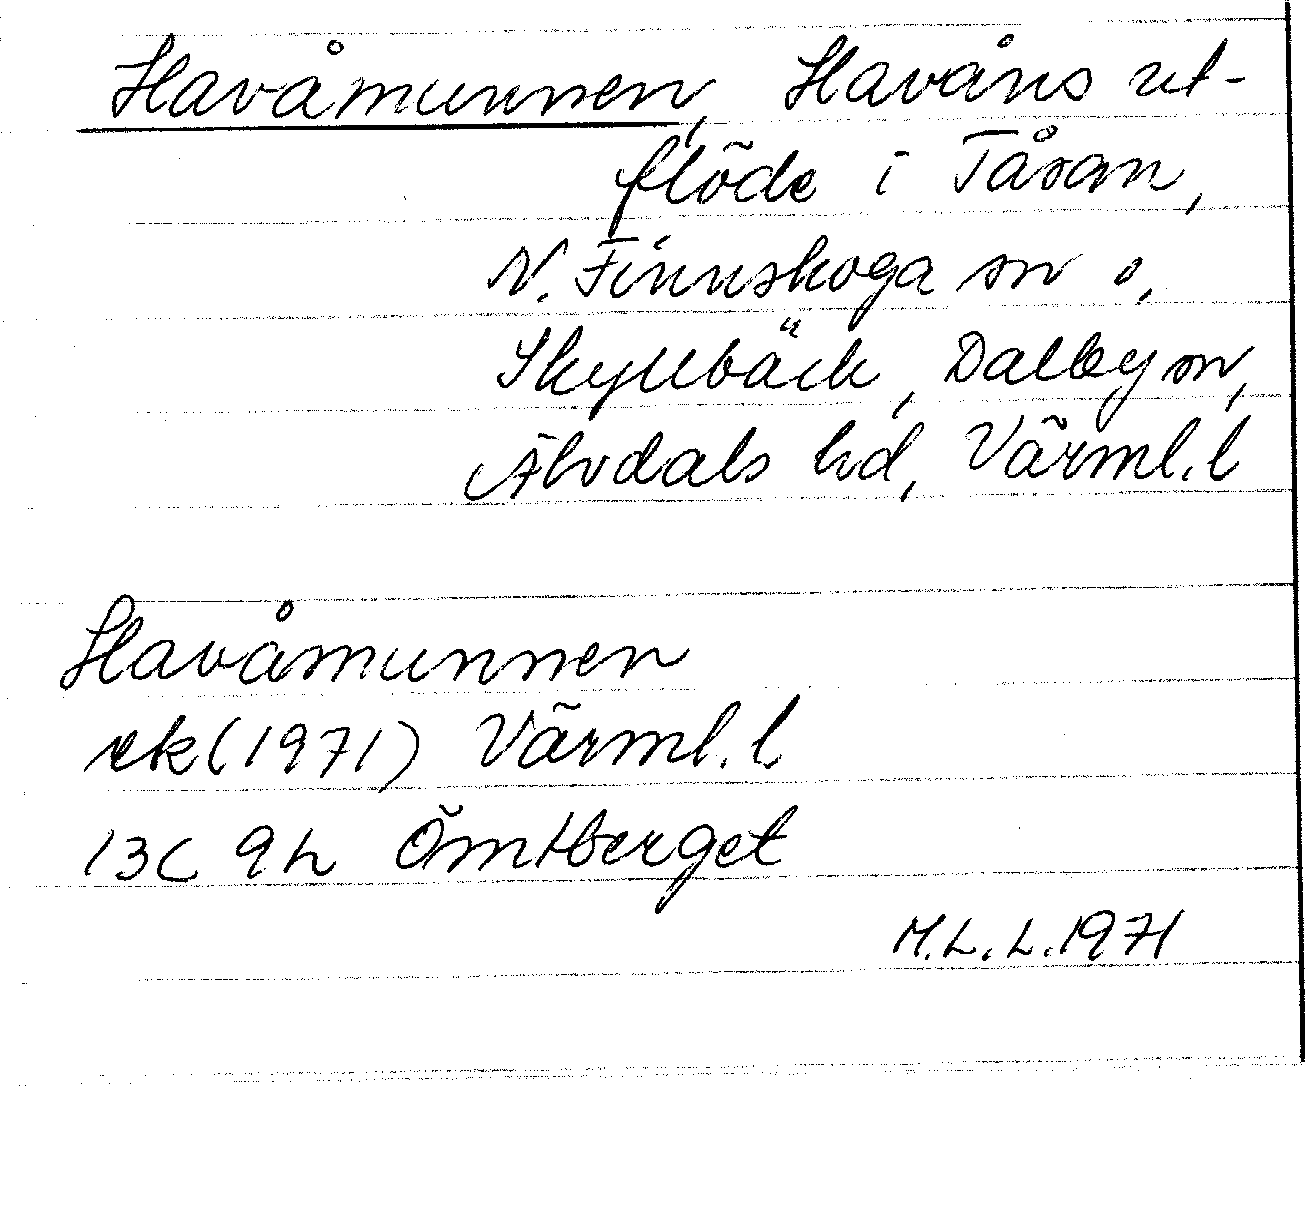 Havåmunnen, Havåns ut-
flöde i Tåsan,
N. Finnskoga sn o,
Skyllbäck, Dalby sn,
Älvdals hd, Värml. l
Havåmunnen
ek (1971) Värml. l.
13C 9h Ömtberget
M.L.L. 1971